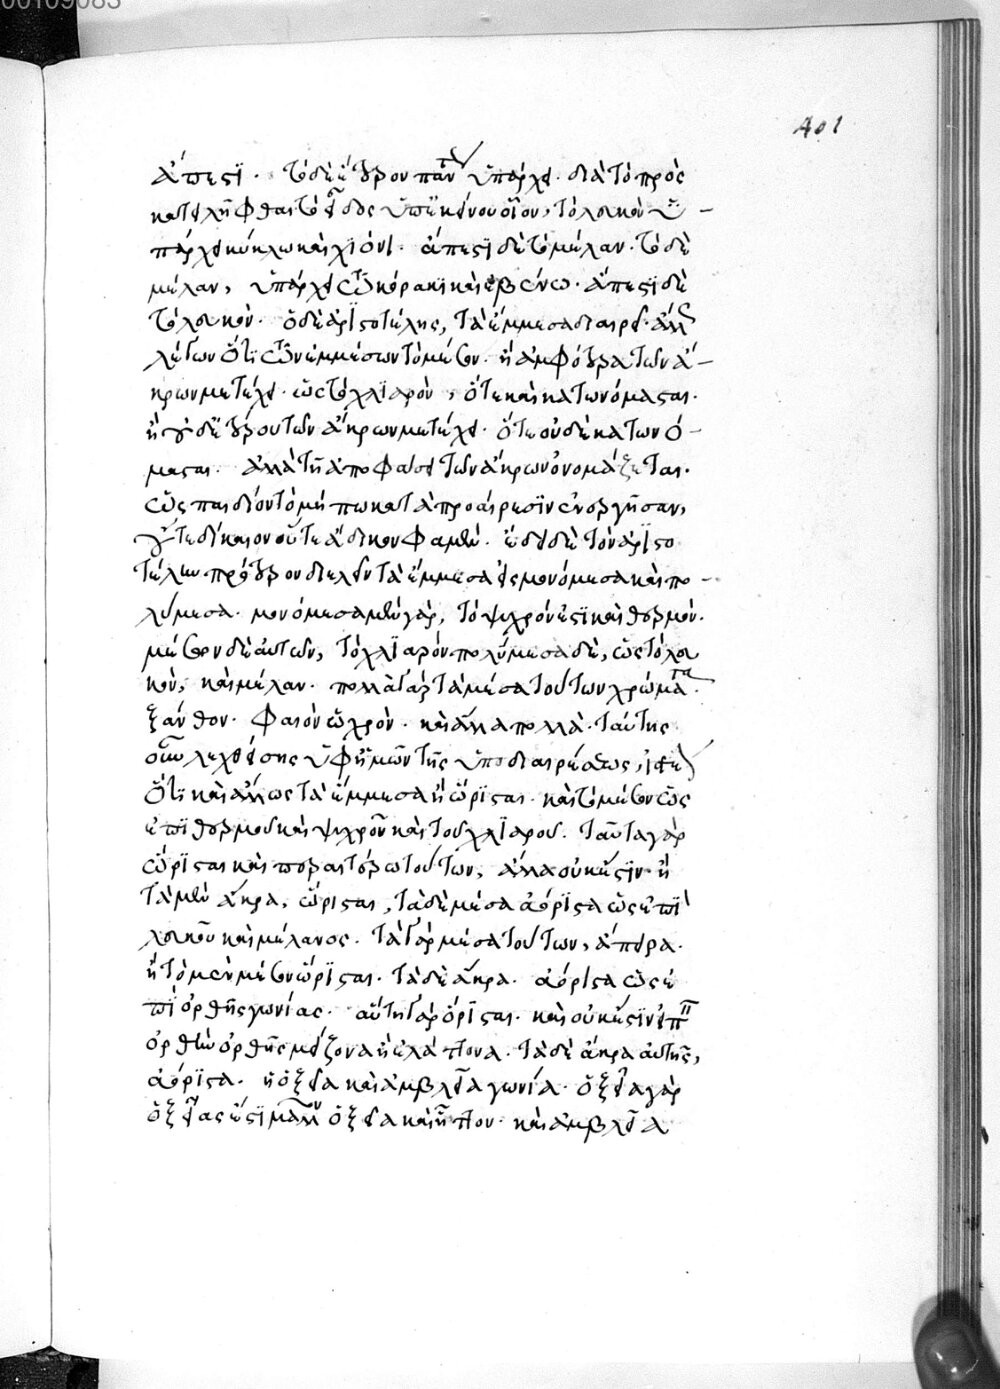 401
ἄπεστι. τὸ δὲ ἕτερον πάντως ὑπάρχει. διὰ τὸ πρὸς
κατειλῆφθαι τὸ εἶδος ὑπ' ἐκείνου οἷον, τὸ λευκὸν ὑ-
πάρχει κύκνω καὶ χιόνι. ἄπεστι δὲ τὸ μέλαν. τὸ δὲ
μέλαν, ὑπάρχει τῶ κόρακι καὶ ἐβένω. ἄπεστι δὲ
τὸ λευκόν. ὁ δὲ ἀριστοτέλης, τὰ ἔμμεσα διαιρεῖ.
λέγων ὅτι τῶν ἐμμέσων τὸ μέσον. ἢ ἀμφότερα τῶν ἄ-
κρων μετέχει. ὡς τὸ χλιαρὸν, ὅτε καὶ κατωνόμασται.
ἢ οὐδετέρου τῶν ἄκρων μετέχει. ὅτε οὐδὲ κατωνό-
μασται. ἀλλὰ τῆ ἀποφάσει τῶν ἄκρων ὀνομάζεται.
ὡς παιδίον τὸ μήπω κατὰ προαίρεσιν ἐνεργῆσαν,
οὔτε δίκαιον οὔτε ἄδικον φαμέν. ἔδει δὲ τὸν ἀριστο
τέλην πρότερον διελεῖν τὰ ἔμμεσα εἰς μονόμεσα καὶ πο-
λύμεσα. μονόμεσα μὲν γὰρ, τὸ ψυχρόν ἐστι καὶ θερμόν.
μέσον δὲ αὐτῶν, τὸ χλιαρόν πολύμεσα δὲ, ὡς τὸ λευ
κὸν, καὶ μέλαν. πολλὰ γὰρ τὰ μέσα τούτων χρώματα.
ξανθόν. φαιόν ὠχρόν. καὶ ἄλλα πολλά. ταύτης
οὖν λεχθείσης ὑφ' ἡμῶν τῆς ὑποδιαιρέσεως,
ὅτι καὶ ἄλλως τὰ ἔμμεσα ἢ ὥρισται. καὶ τὸ μέσον ὡς
ἐπὶ θερμοῦ καὶ ψυχροῦ καὶ τοῦ χλιαροῦ. ταῦτα γὰρ
ὥρισται καὶ περαιτέρω τούτων, ἄλλα οὐκ ἔστιν. ἢ
τὰ μὲν ἄκρα, ὥρισται, τὰ δὲ μέσα ἀόριστα ὡς ἐπὶ
λευκοῦ καὶ μέλανος. τὰ γὰρ μέσα τούτων, ἄπειρα.
ἢ τὸ μὲν μέσον ὥρισται. τὰ δὲ ἄκρα. ἀόριστα ὡς ἐ
πὶ ὀρθῆς γωνίας. αὕτη γὰρ ὅρισται. καὶ οὐκ ἔστιν εἰπεῖν
ὀρθὴν ὀρθῆς μείζονα ἢ ἐλάττονα. τὰ δὲ ἄκρα αὐτῆς,
ἀόριστα. ἡ ὀξεῖα καὶ ἀμβλεῖα γωνία. ὀξεῖα γὰρ
ὀξείας ἐστὶ μᾶλλον ὀξεῖα καὶ ἧττον. καὶ ἀμβλεῖα